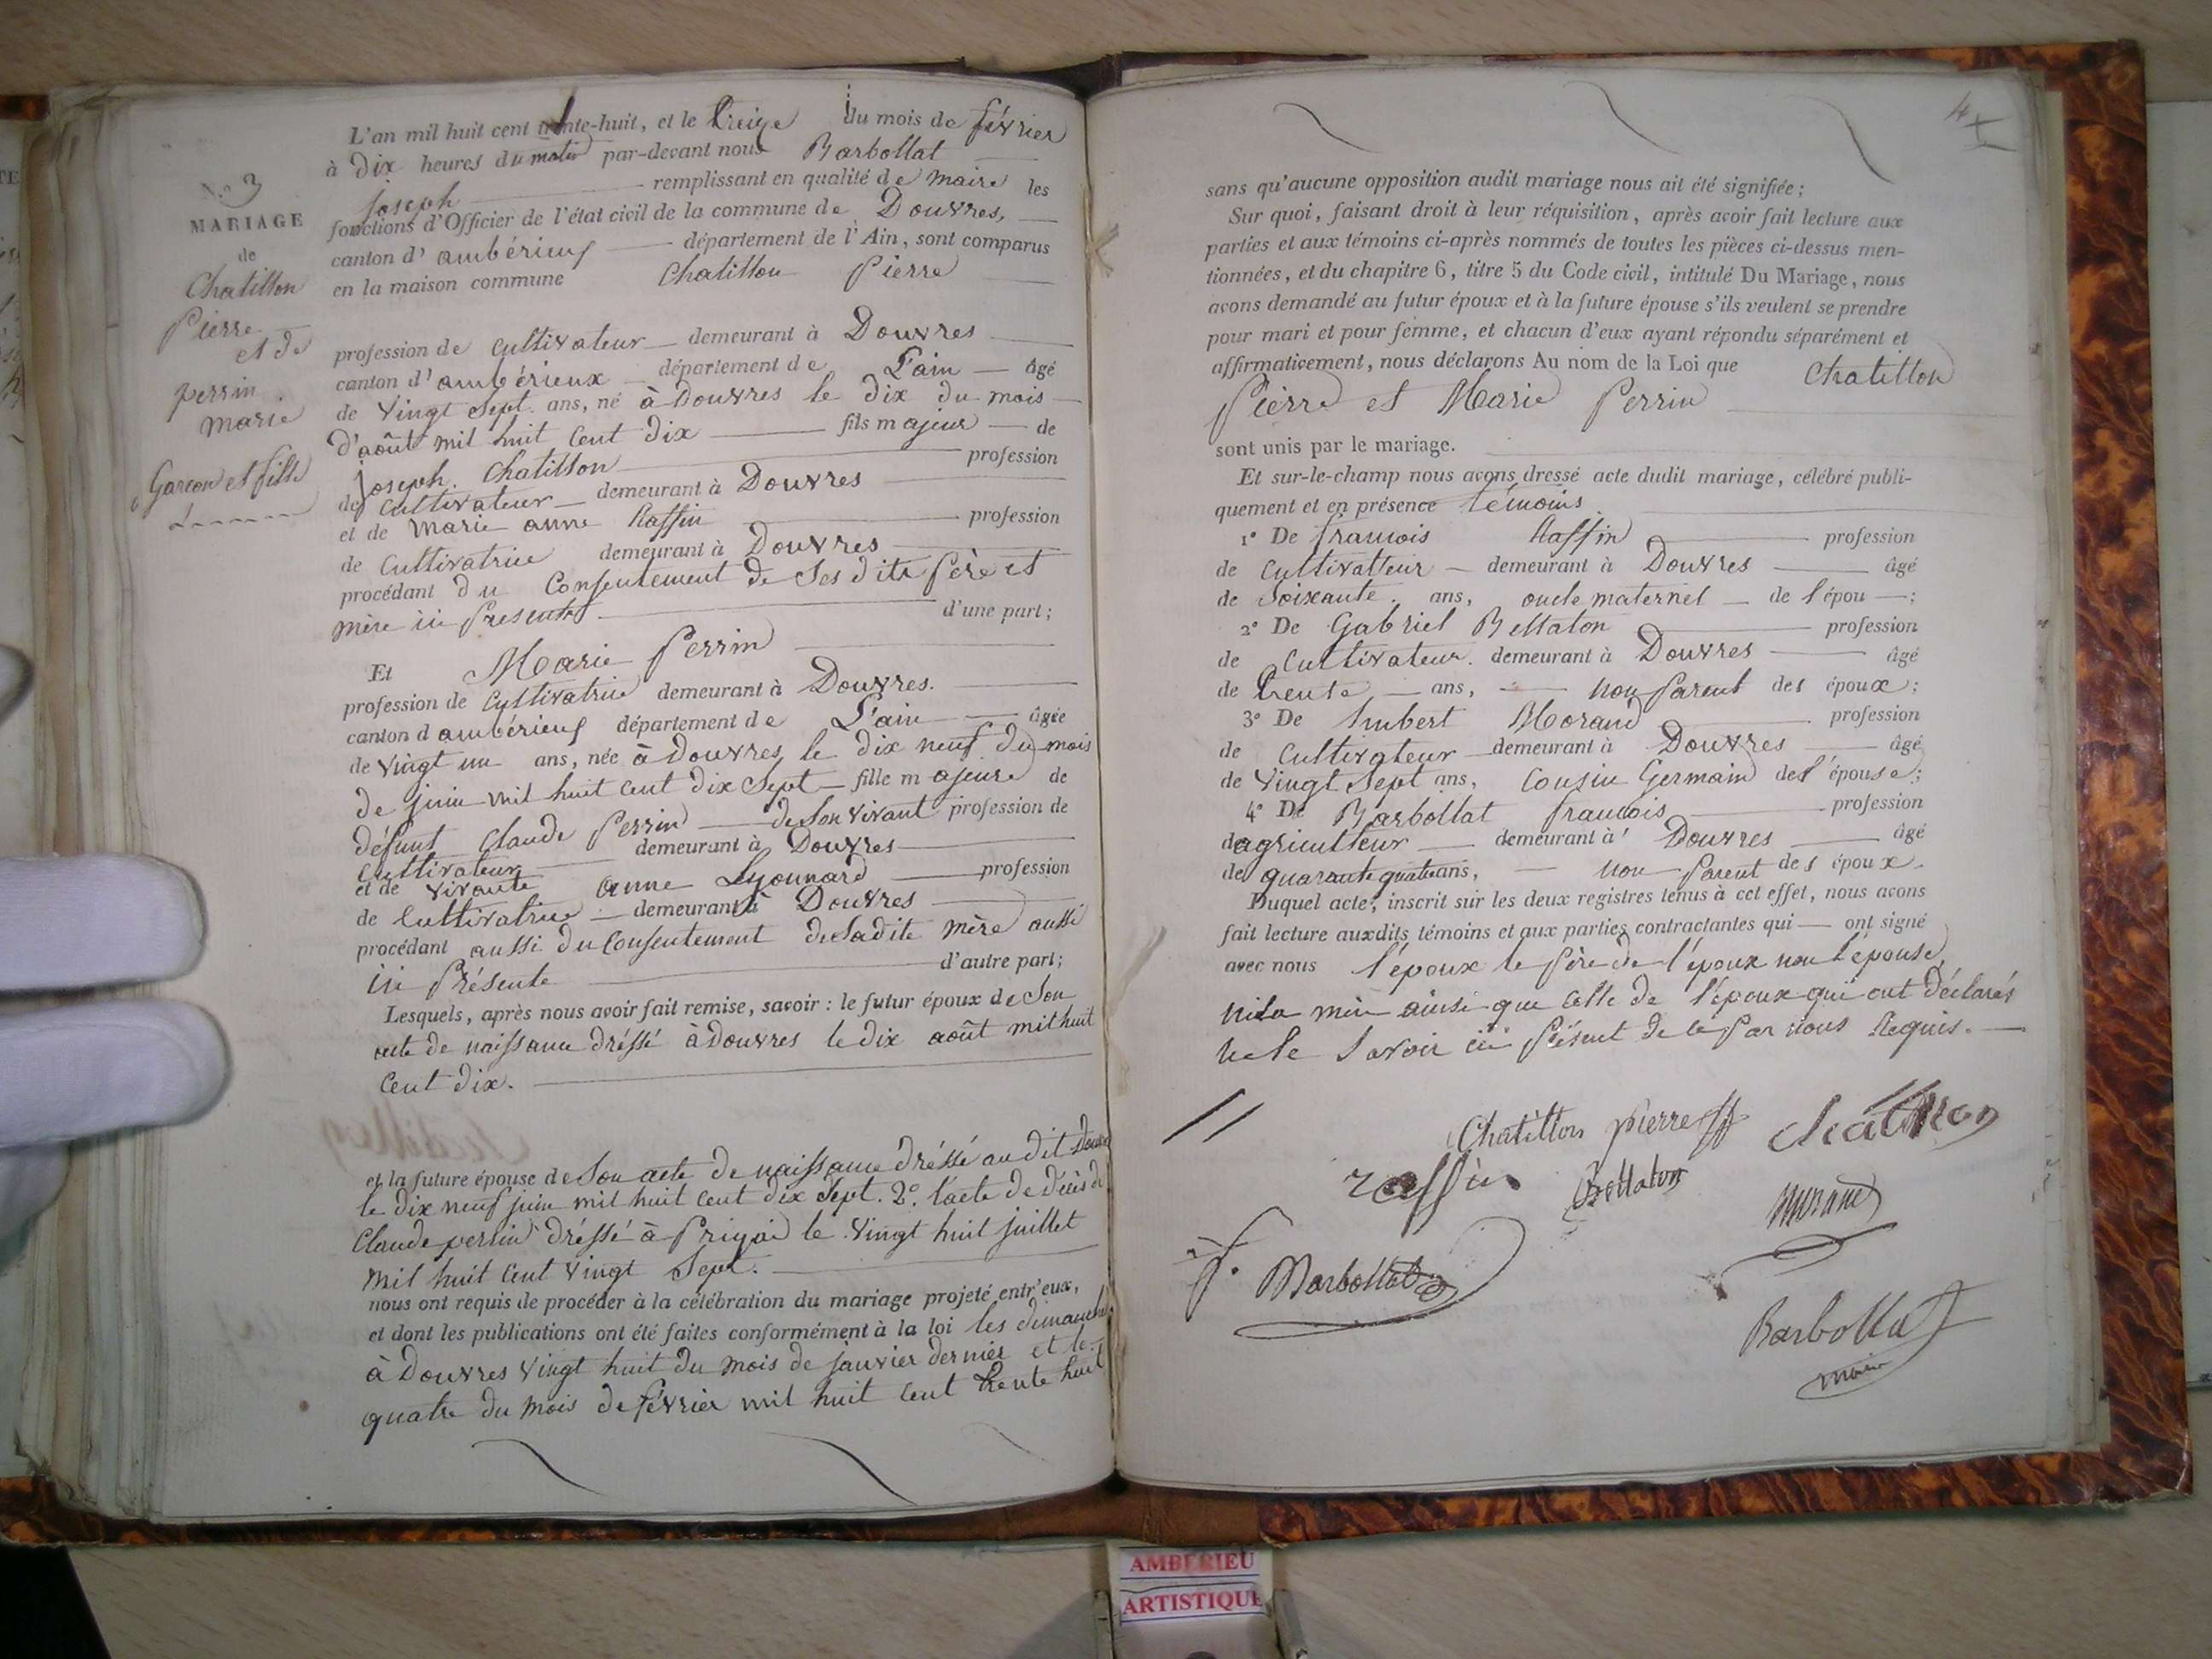 N.o 3
MARIAGE
de
Chatillon
Pierre
et de
perrin
marie
Garcon et fille
L'an mil huit cent trente-huit, et le treize du mois de février
à dix heures du matin par-devant nous Barbollat
joseph remplissant en qualité de maire les
fonctions d'Officier de l'état civil de la commune de Douvres,
canton d' ambérieuf département de l'Ain, sont comparus
en la maison commune Chatillon Pierre
profession de cultivateur demeurant à Douvres
canton d' ambérieux département de L'ain âgé
de vingt sept ans, né à Douvres le dix du mois
d'août mil huit cent dix fils majeur de
joseph. Chatillon profession
de cultivateur demeurant à Douvres
et de marie anne Raffin profession
de cultivatrice demeurant à Douvres
procédant du consentement de ses dits père et
mère ici présents d'une part;
Et Marie Perrin
profession de cultivatrice demeurant à Douvres.
canton d ambérieuf département de L'ain âgée
de vingt un ans, née à Douvres le dix neuf du mois
de juin mil huit cent dix sept fille majeure de
défunt Claude Perrin de son vivant profession de
cultivateur demeurant à Douvres
et de vivante anne Lyonnard profession
de cultivatrice demeurant à Douvres
procédant aussi du consentement de sadite mère aussi
ici présente d'autre part;
Lesquels, après nous avoir fait remise, savoir : le futur époux de son
acte de naissance dréssé à Douvres le dix août mil huit
cent dix.
et la future épouse de son acte de naissance dréssé audit
le dix neuf juin mil huit cent dix sept. 2o. l'acte de décès de
Claude perrin dréssé à le vingt huit juillet
mil huit cent vingt sept.
nous ont requis de procéder à la célébration du mariage projeté entr'eux,
et dont les publications ont été faites conformément à la loi les dimanches
à Douvres vingt huit du mois de janvier dernier et le
quatre du mois de février mil huit cent trente huit
4
sans qu'aucune opposition audit mariage nous ait été signifiée;
Sur quoi, faisant droit à leur réquisition, après avoir fait lecture aux
parties et aux témoins ci-après nommés de toutes les pièces ci-dessus men-
tionnées, et du chapitre 6, titre 5 du Code civil, intitulé Du Mariage, nous
avons demandé au futur époux et à la future épouse s'ils veulent se prendre
pour mari et pour femme, et chacun d'eux ayant répondu séparément et
affirmativement, nous déclarons Au nom de la Loi que Chatillon
Pierre et Marie Perrin
sont unis par le mariage.
Et sur-le-champ nous avons dressé acte dudit mariage, célébré publi-
quement et en présence témoins
1o De francois Raffin profession
de cultivatteur demeurant à Douvres âgé
de soixante. ans, oncle maternel de l'épou ;
2o De Gabriel Bellaton profession
de cultivateur. demeurant à Douvres âgé
de trente ans, non parent des époux;
3o De Imbert Morand profession
de cultivateur demeurant à Douvres âgé
de vingt sept ans, cousin Germain de l'épouse;
4o De Barbollat francois profession
dagriculteur demeurant à Douvres âgé
de quarante quatre ans, non parent des époux.
Duquel acte, inscrit sur les deux registres tenus à cet effet, nous avons
fait lecture auxdits témoins et aux parties contractantes qui ont signé
avec nous l'époux le père de l'époux non l'épouse,
ni sa mère ainsi que celle de l'époux qui ont déclarés
ne le savoir ici présent de ce par nous requis.
Chatillon pierre chatillon
raffin Bellaton morand
f. Barbollat
Barbollat
maire
AMBERIEU
ARTISTIQUE